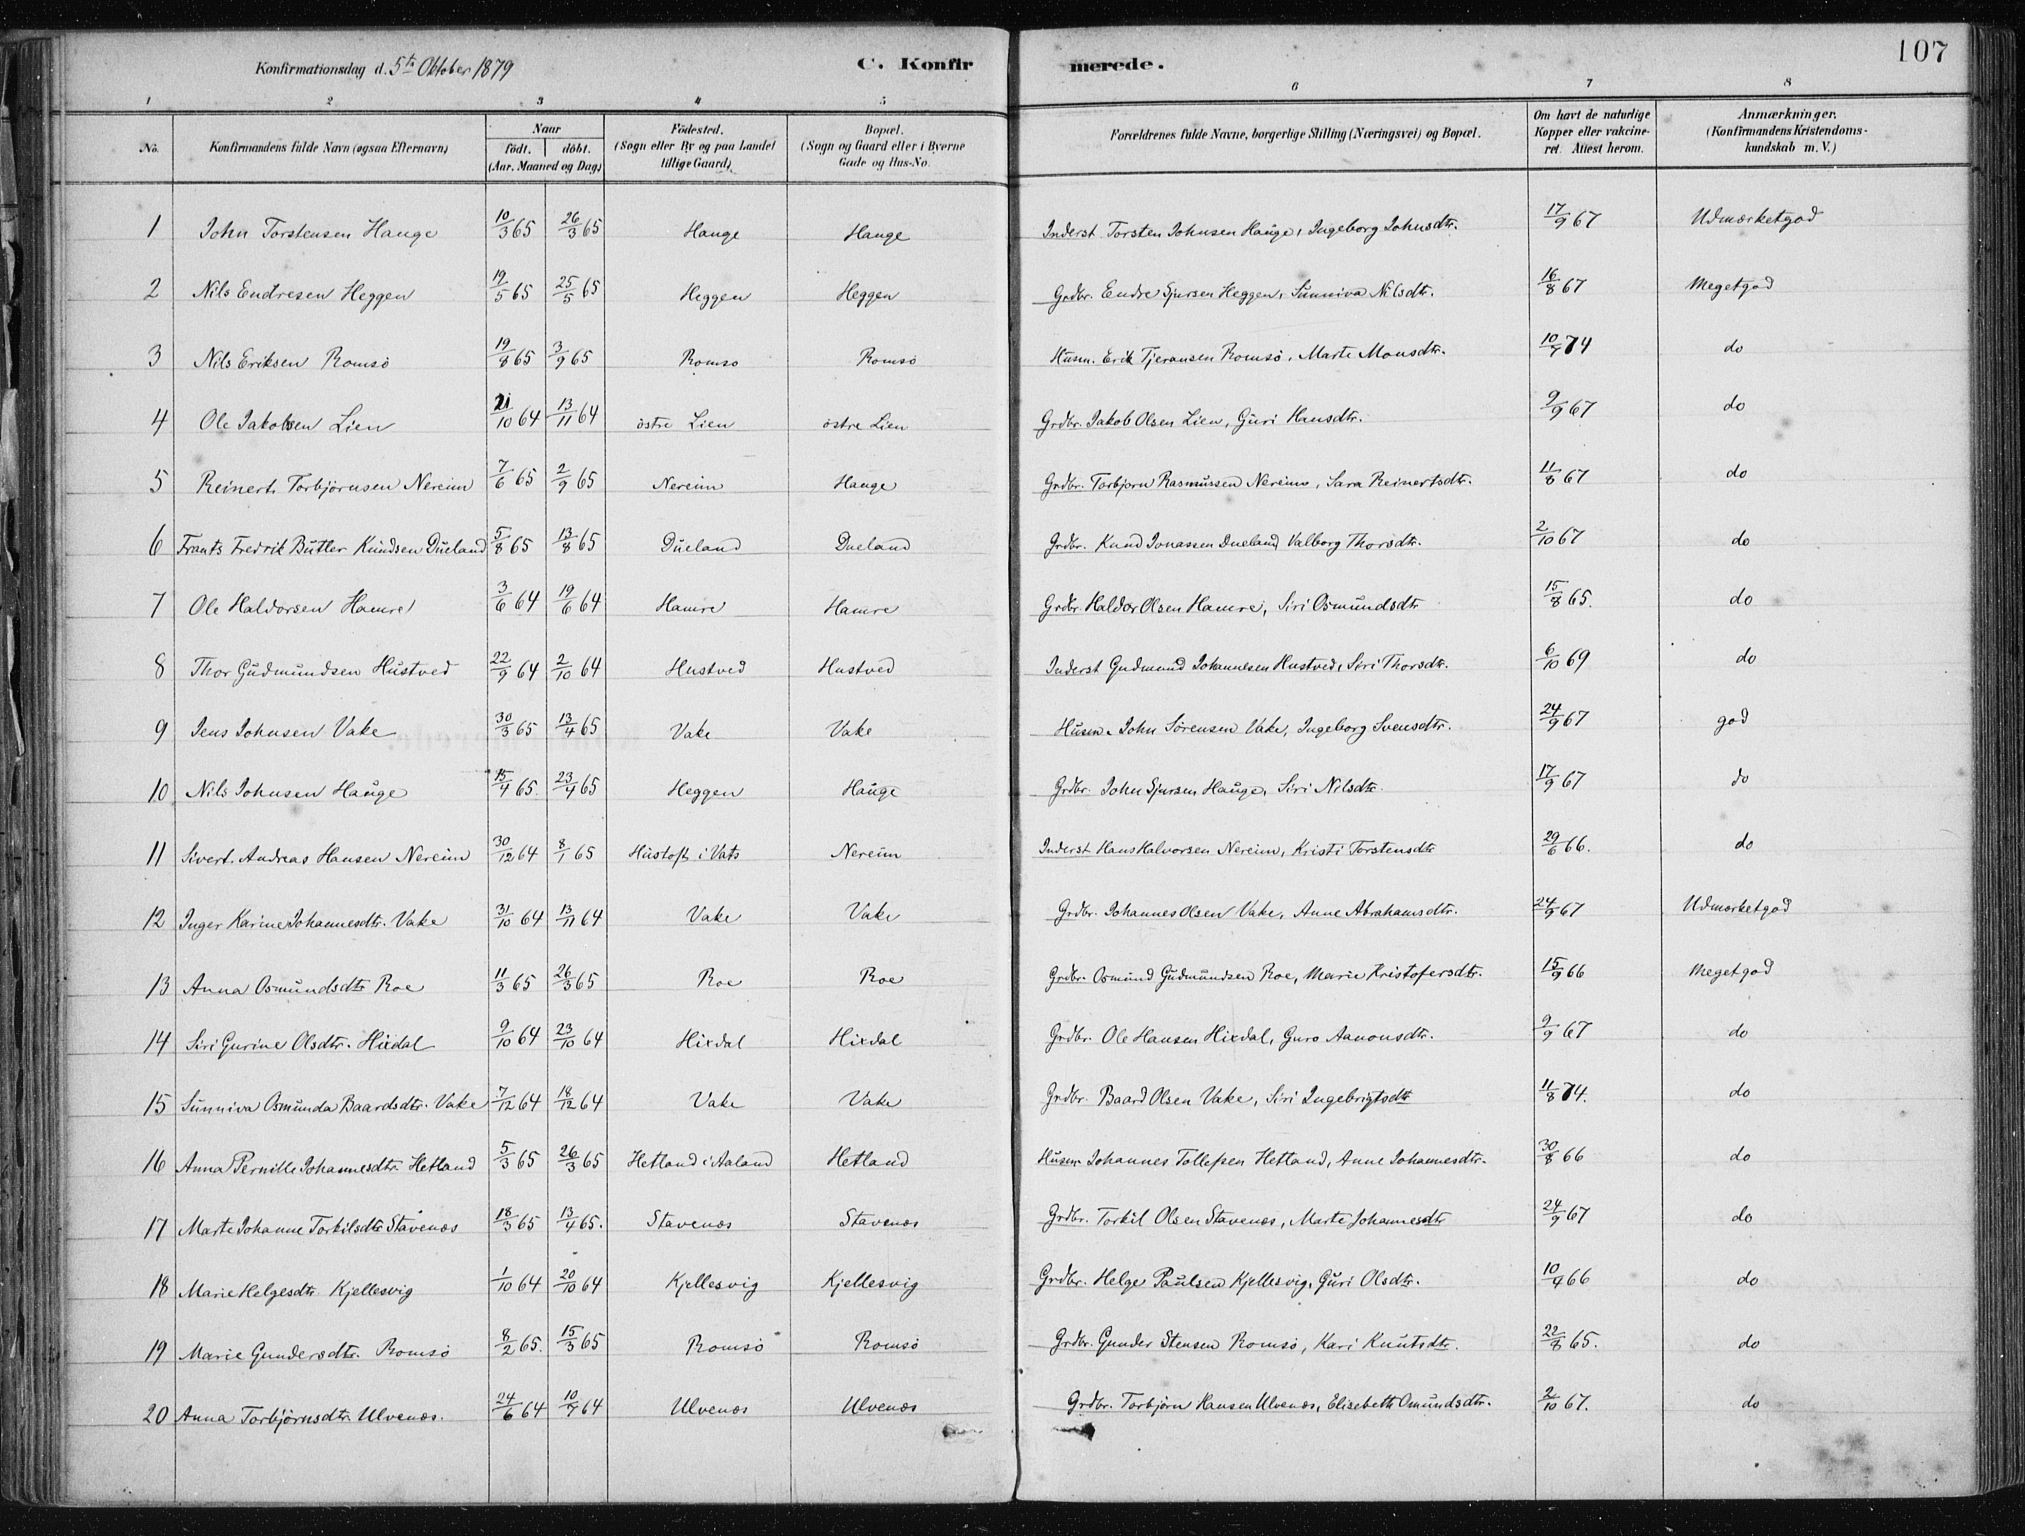 107
Konfirmationsdag d. 5te Oktober 1879 C. Konfirmerede.
1 2 3 4 5 6 7 8
No. Konfirmandens fulde Navn (ogsaa Efternavn) Naar födt. döbt. (Aar, Maaned og Dag) Födested. (Sogn eller By og paa Landet tillige Gaard) Bopæl. (Sogn og Gaard eller i Byerne Gade og Hus-No. Forældrenes fulde Navne, borgerlige Stilling (Næringsvei) og Bopæl. Om havt de naturlige Kopper eller vakcineret. Attest herom. Anmærkninger. (Konfirmandens Kristendomskundskab m. V.)
1 John Torstensen Hauge 10/3 65 26/3 65 Hauge Hauge Inderst Torsten Johnsen Hauge, Ingeborg Johnsdtr. 17/9 67 Udmærketgod
2 Nils Endresen Heggen 19/5 65 25/5 65 Heggen Heggen Grdbr. Endre Sjursen Heggen, Sunniva Nilsdtr. 16/8 67 Megetgod
3 Nils Eriksen Romsö 19/8 65 3/9 65 Romso Romsö Husm. Erik Tjeransen Romsö, Marte Monsdtr. 10/7 74 do
4 Ole Jakobsen Lien 21/10 64 13/11 64 östre Lien östre Lien Grdbr. Jakob Olsen Lien, Guri Hansdtr. 9/9 67 do
5 Reinert Torbjörnsen Nereim 7/6 65 2/9 65 Nereim Hauge Grdbr. Torbjorn Rasmussen Nereim, Sara Reinertsdtr. 11/8 67 do
6 Frants Fredrik Butler Knudsen Dueland 5/8 65 13/8 65 Dueland Dueland Grdbr. Knud Jonassen Dueland, Valborg Thorsdtr. 2/10 67 do
7 Ole Haldorsen Hamre 3/6 64 19/6 64 Hamre Hamre Grdbr. Haldor Olsen Hamre, Siri Osmundsdtr 15/8 65. do
8 Thor Gudmundsen Hustved 22/9 64 2/10 64 Hustved Hustved Inderst Gudmund Johannesen Hustved, Siri Thorsdtr. 6/10 69 do
9 Jens Johnsen Vake 30/3 65 13/4 65 Vake Vake Husm. John Sörensen Vake, Ingeborg Svensdtr. 24/9 67 god
10 Nils Johnsen Hauge 15/4 65. 23/4 65 Heggen Hauge Grdbr. John Sjursen Hauge, Siri Nilsdtr. 17/9 67 do
11 Sivert Andreas Hansen Nereim 30/12 64 8/1 65 Hustoft i Vats Nereim Inderst Hans Halvorsen Nereim, Kristi Torstensdtr 29/6 66. do
12 Inger Karine Johannesdtr. Vake 31/10 64 13/11 64 Vake Vake Grdbr. Johannes Olsen Vake, Anne Abrahamsdtr. 24/9 67 Udmærketgod
13 Anna Osmundsdtr Roe 11/3 65 26/3 65 Roe Roe Grdbr. Osmund Gudmundsen Roe, Marie Kristofersdtr. 15/9 66 Megetgod
14 Siri Gurine Olsdtr. Hixdal 9/10 64 23/10 64 Hixdal Hixdal Grdbr. Ole Hansen Hixdal, Guro Aanonsdtr. 9/9 67 do
15 Sunniva Osmunda Baardsdtr. Vake 7/12 64 18/12 64 Vake Vake Grdbr. Baard Olsen Vake, Siri Ingebrigtsdtr 11/8 74. do
16 Anna Pernille Johannesdtr. Hetland 5/3 65 26/3 65 Hetland i Aaland Hetland Husm. Johannes Tollefsen Hetland, Anne Johannesdtr. 30/8 66 do
17 Marte Johanne Torkilsdtr Stavenæs 18/3 65 13/4 65. Stavenæs Stavenæs Grdbr. Torkil Olsen Stavenæs, Marte Johannesdtr 24/9 67 do
18 Marie Helgesdtr. Kjellesvig 1/10 64 20/10 64 Kjellesvig Kjellesvig Grdbr. Helge Paulsen Kjellesvig, Guri Olsdtr. 10/9 66 do
19 Marie Gundersdtr. Romsö 8/2 65. 15/3 65 Romsö Romsö Grdbr. Gunder Stensen Romsö, Kari Knutsdtr. 22/8 65. do
20 Anna Torbjörnsdtr. Ulvenæs. 24/6 64 10/7 64 Ulvenæs Ulvenæs Grdbr. Torbjörn Hansen Ulvenæs, Elisabeth Omundsdtr. 2/10 67. do